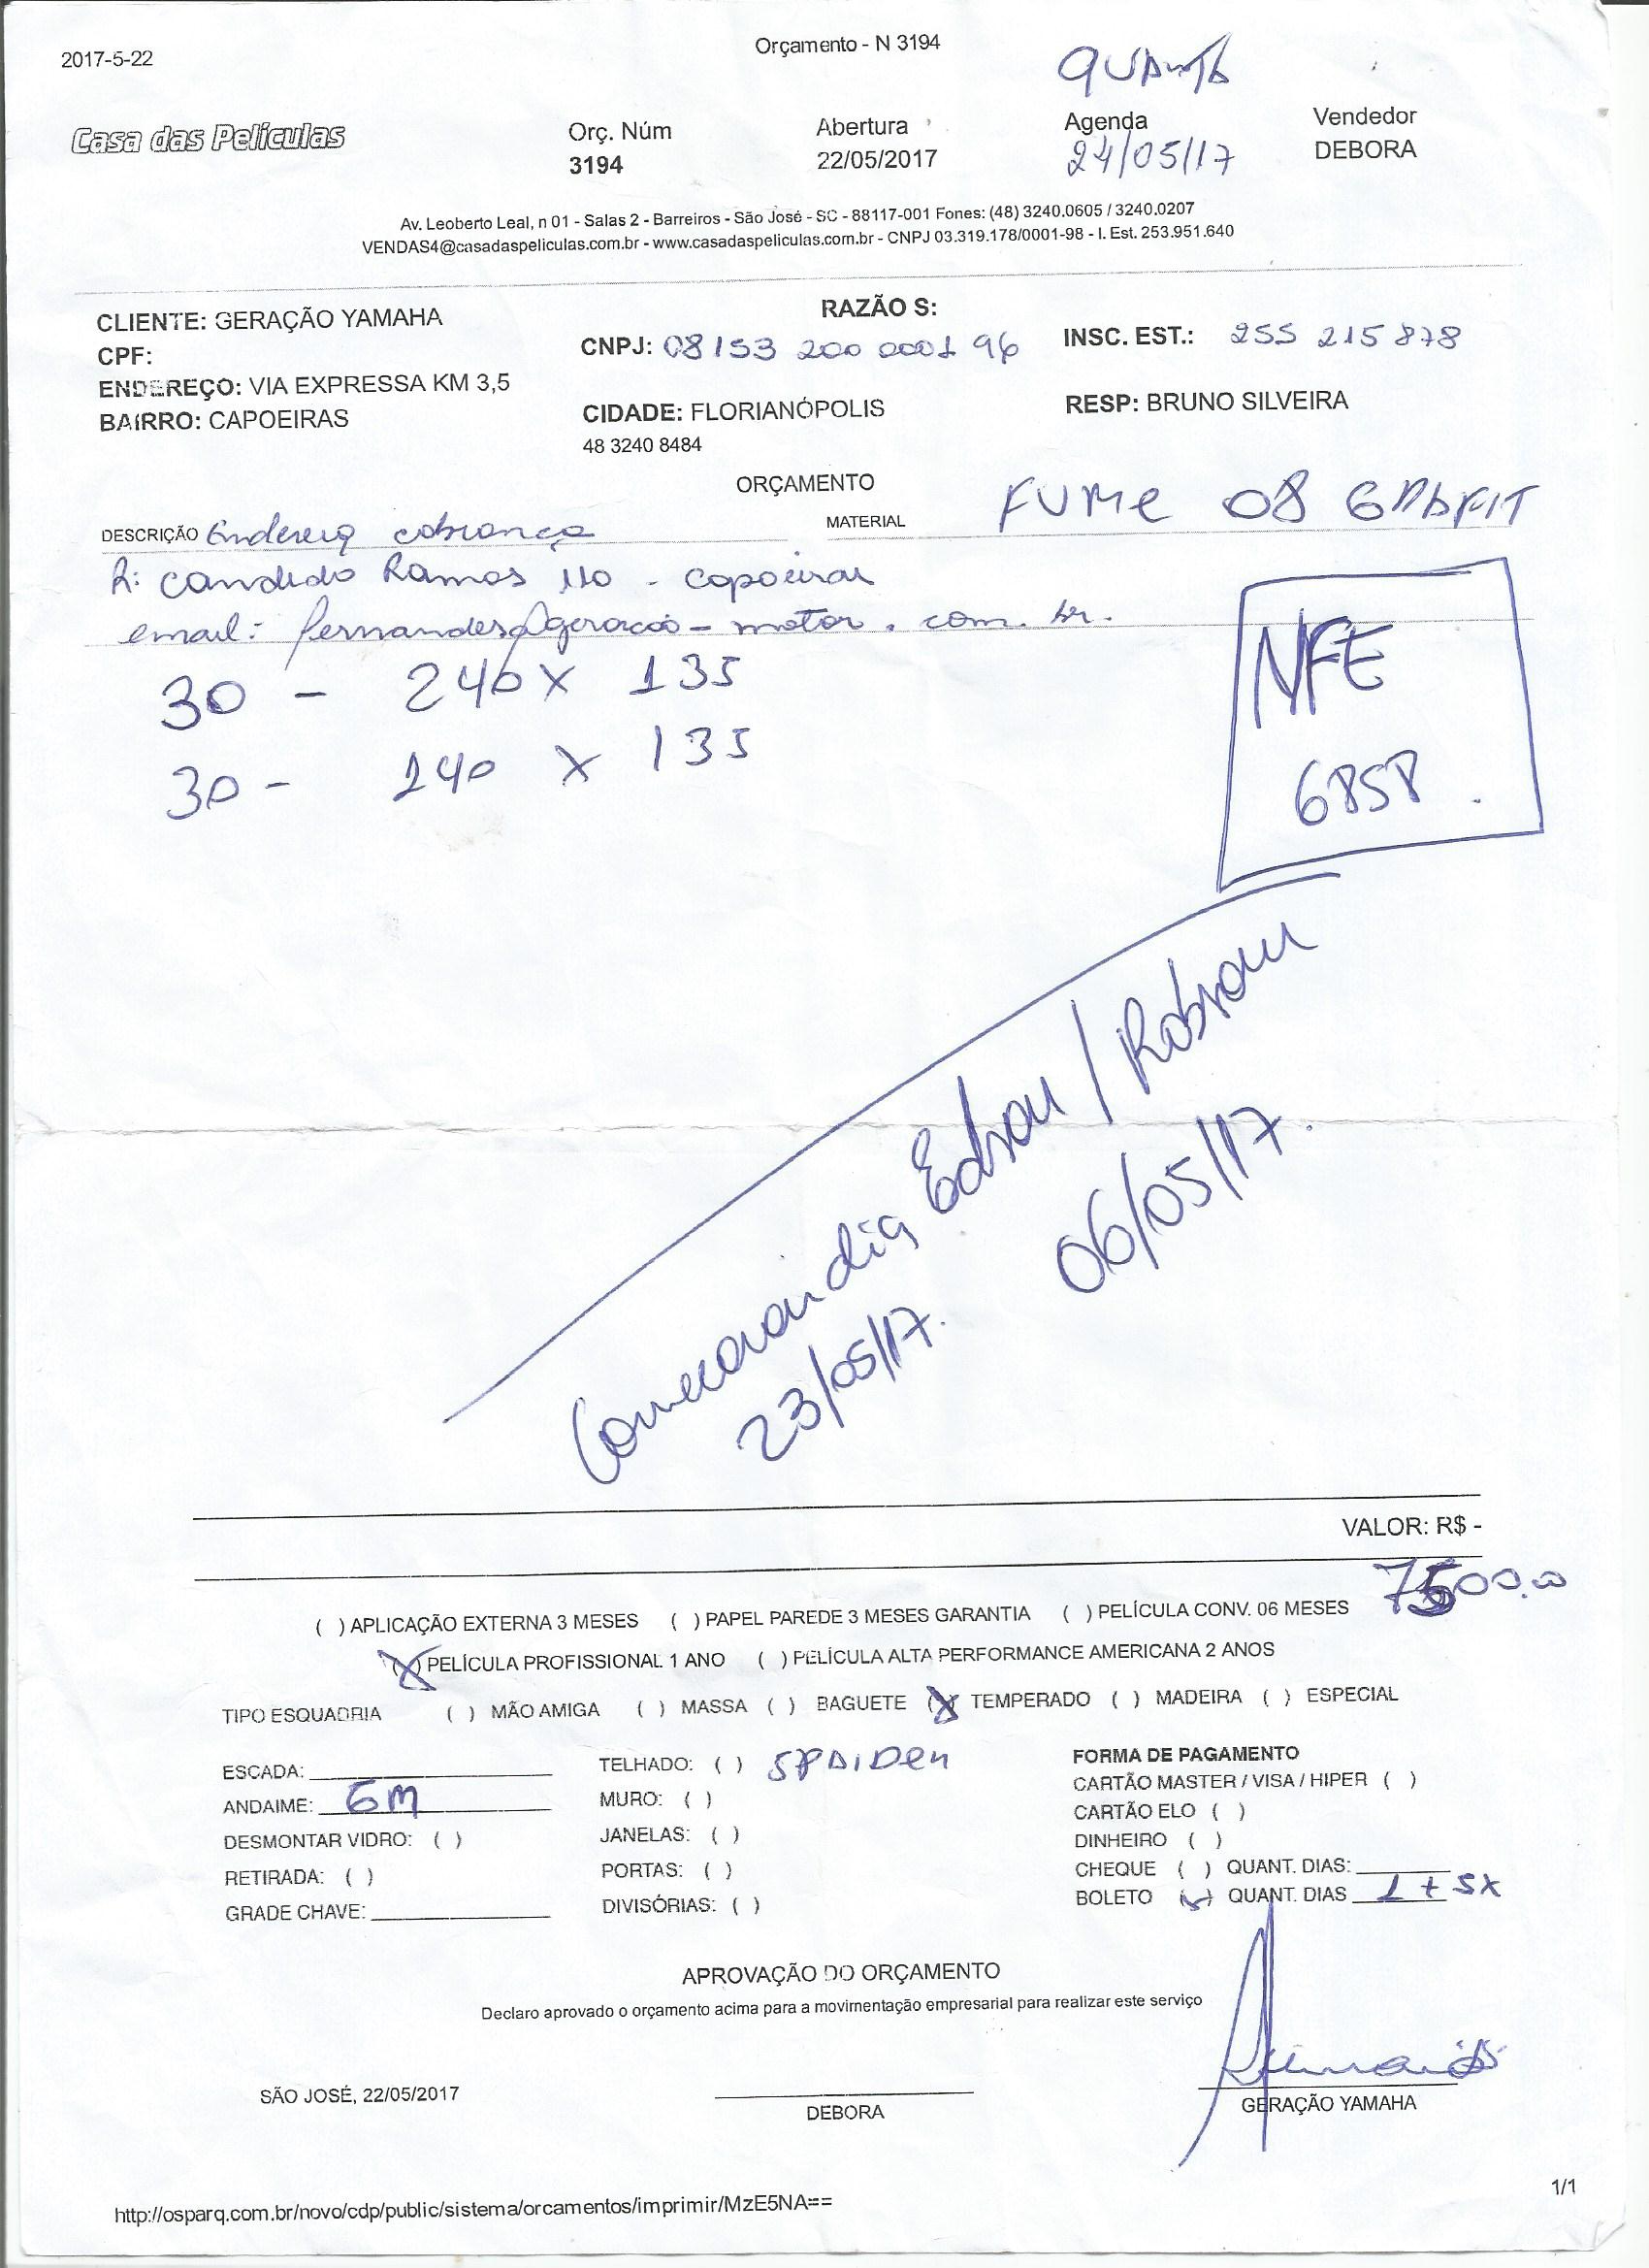 2017-5-22
Orçamento - N 3194
QUARTA
Casa das Películas
Orç. Núm
3194
Abertura
22/05/2017
Agenda
24/05/17
Vendedor
DEBORA
Av. Leoberto Leal, n 01 - Salas 2 - Barreiros - São José - SC - 88117-001 Fones: (48) 3240.0605 / 3240.0207
VENDAS4@casadaspeliculas.com.br - www.casadaspeliculas.com.br - CNPJ 03.319.178/0001-98 - I. Est. 253.951.640
CLIENTE: GERAÇÃO YAMAHA
CPF:
ENDEREÇO: VIA EXPRESSA KM 3,5
BAIRRO: CAPOEIRAS
RAZÃO S:
CNPJ: 08153 200 0001 96
CIDADE: FLORIANÓPOLIS
48 3240 8484
INSC. EST.: 255 215 878
RESP: BRUNO SILVEIRA
ORÇAMENTO
DESCRIÇÃO Endereço cobrança
MATERIAL FUMe 08 GRAFIT
R: Candido Ramos 110 - Capoeiras
email: fernandes@geracao-motor.com.br.
30 - 240 X 135
30 - 140 X 135
NFE
6858.
Comecaram dia Edson / Robson
23/05/17. 06/05/17.
VALOR: R$ -
7500,00
( ) APLICAÇÃO EXTERNA 3 MESES ( ) PAPEL PAREDE 3 MESES GARANTIA ( ) PELÍCULA CONV. 06 MESES
(X) PELÍCULA PROFISSIONAL 1 ANO ( ) PELÍCULA ALTA PERFORMANCE AMERICANA 2 ANOS
TIPO ESQUADRIA ( ) MÃO AMIGA ( ) MASSA ( ) BAGUETE (X) TEMPERADO ( ) MADEIRA ( ) ESPECIAL
ESCADA:
ANDAIME: 6M
DESMONTAR VIDRO: ( )
RETIRADA: ( )
GRADE CHAVE:
TELHADO: ( ) SPAIDER
MURO: ( )
JANELAS: ( )
PORTAS: ( )
DIVISÓRIAS: ( )
FORMA DE PAGAMENTO
CARTÃO MASTER / VISA / HIPER ( )
CARTÃO ELO ( )
DINHEIRO ( )
CHEQUE ( ) QUANT. DIAS:
BOLETO (X) QUANT. DIAS 1 + 5X
APROVAÇÃO DO ORÇAMENTO
Declaro aprovado o orçamento acima para a movimentação empresarial para realizar este serviço
SÃO JOSÉ, 22/05/2017
DEBORA
GERAÇÃO YAMAHA
http://osparq.com.br/novo/cdp/public/sistema/orcamentos/imprimir/MzE5NA==
1/1